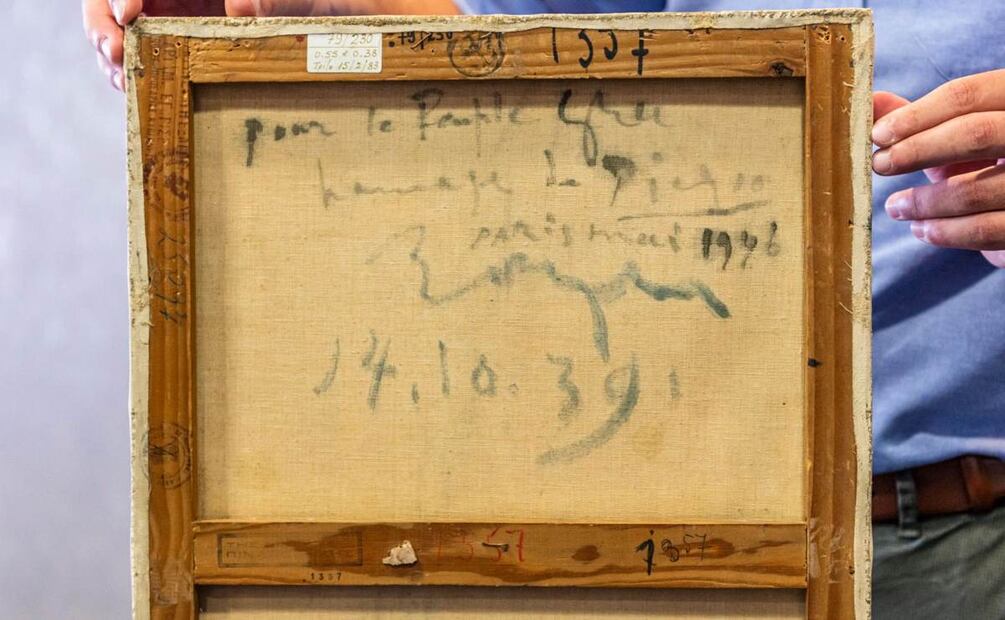 79/230
0.55 x 0.38
79/230
1357
pour le Peuple Grec
homage de Picasso
Paris mai 1946
14.10.39.
1357
1357
1357